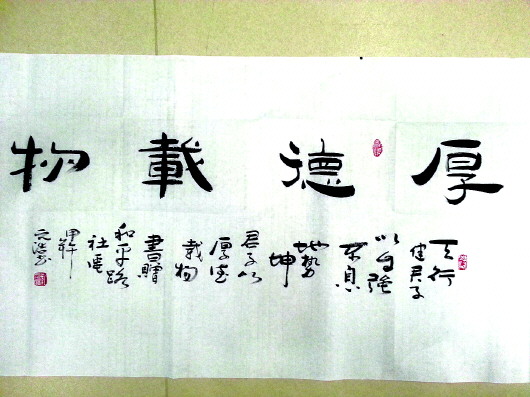 厚德載物
天行
健君子
以自強
不息
地勢
坤
君子以
厚德
載物
書贈
和平路
社區
甲午